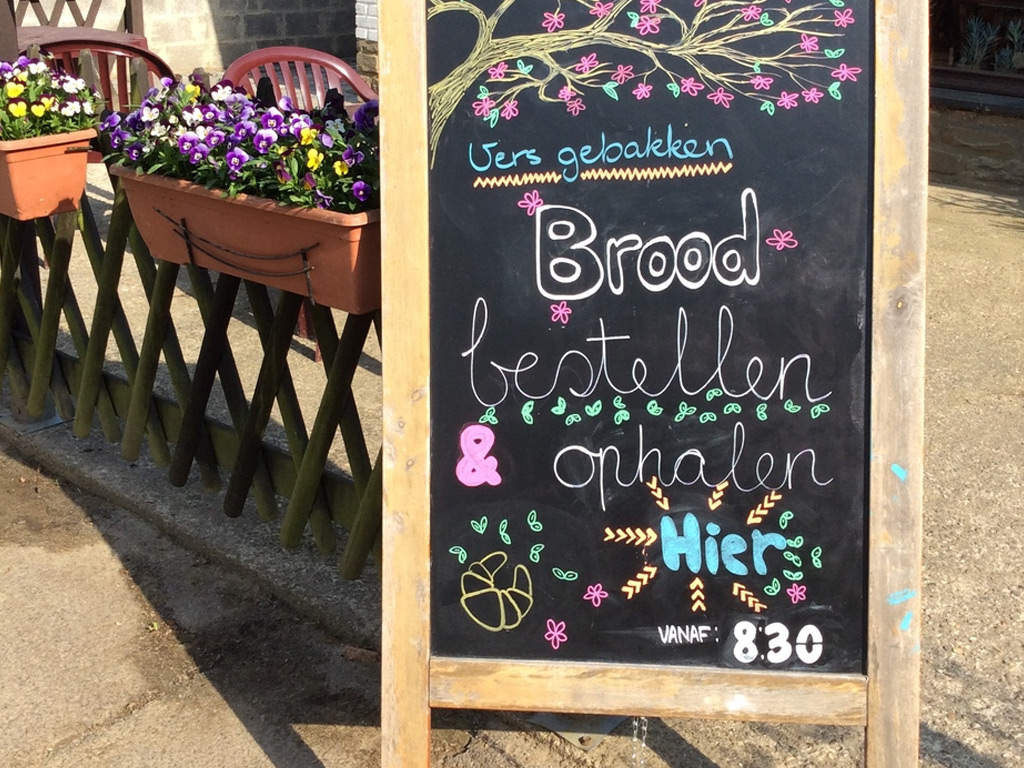 Vers gebakken
Brood
bestellen
& ophalen
Hier
VANAF: 8:30